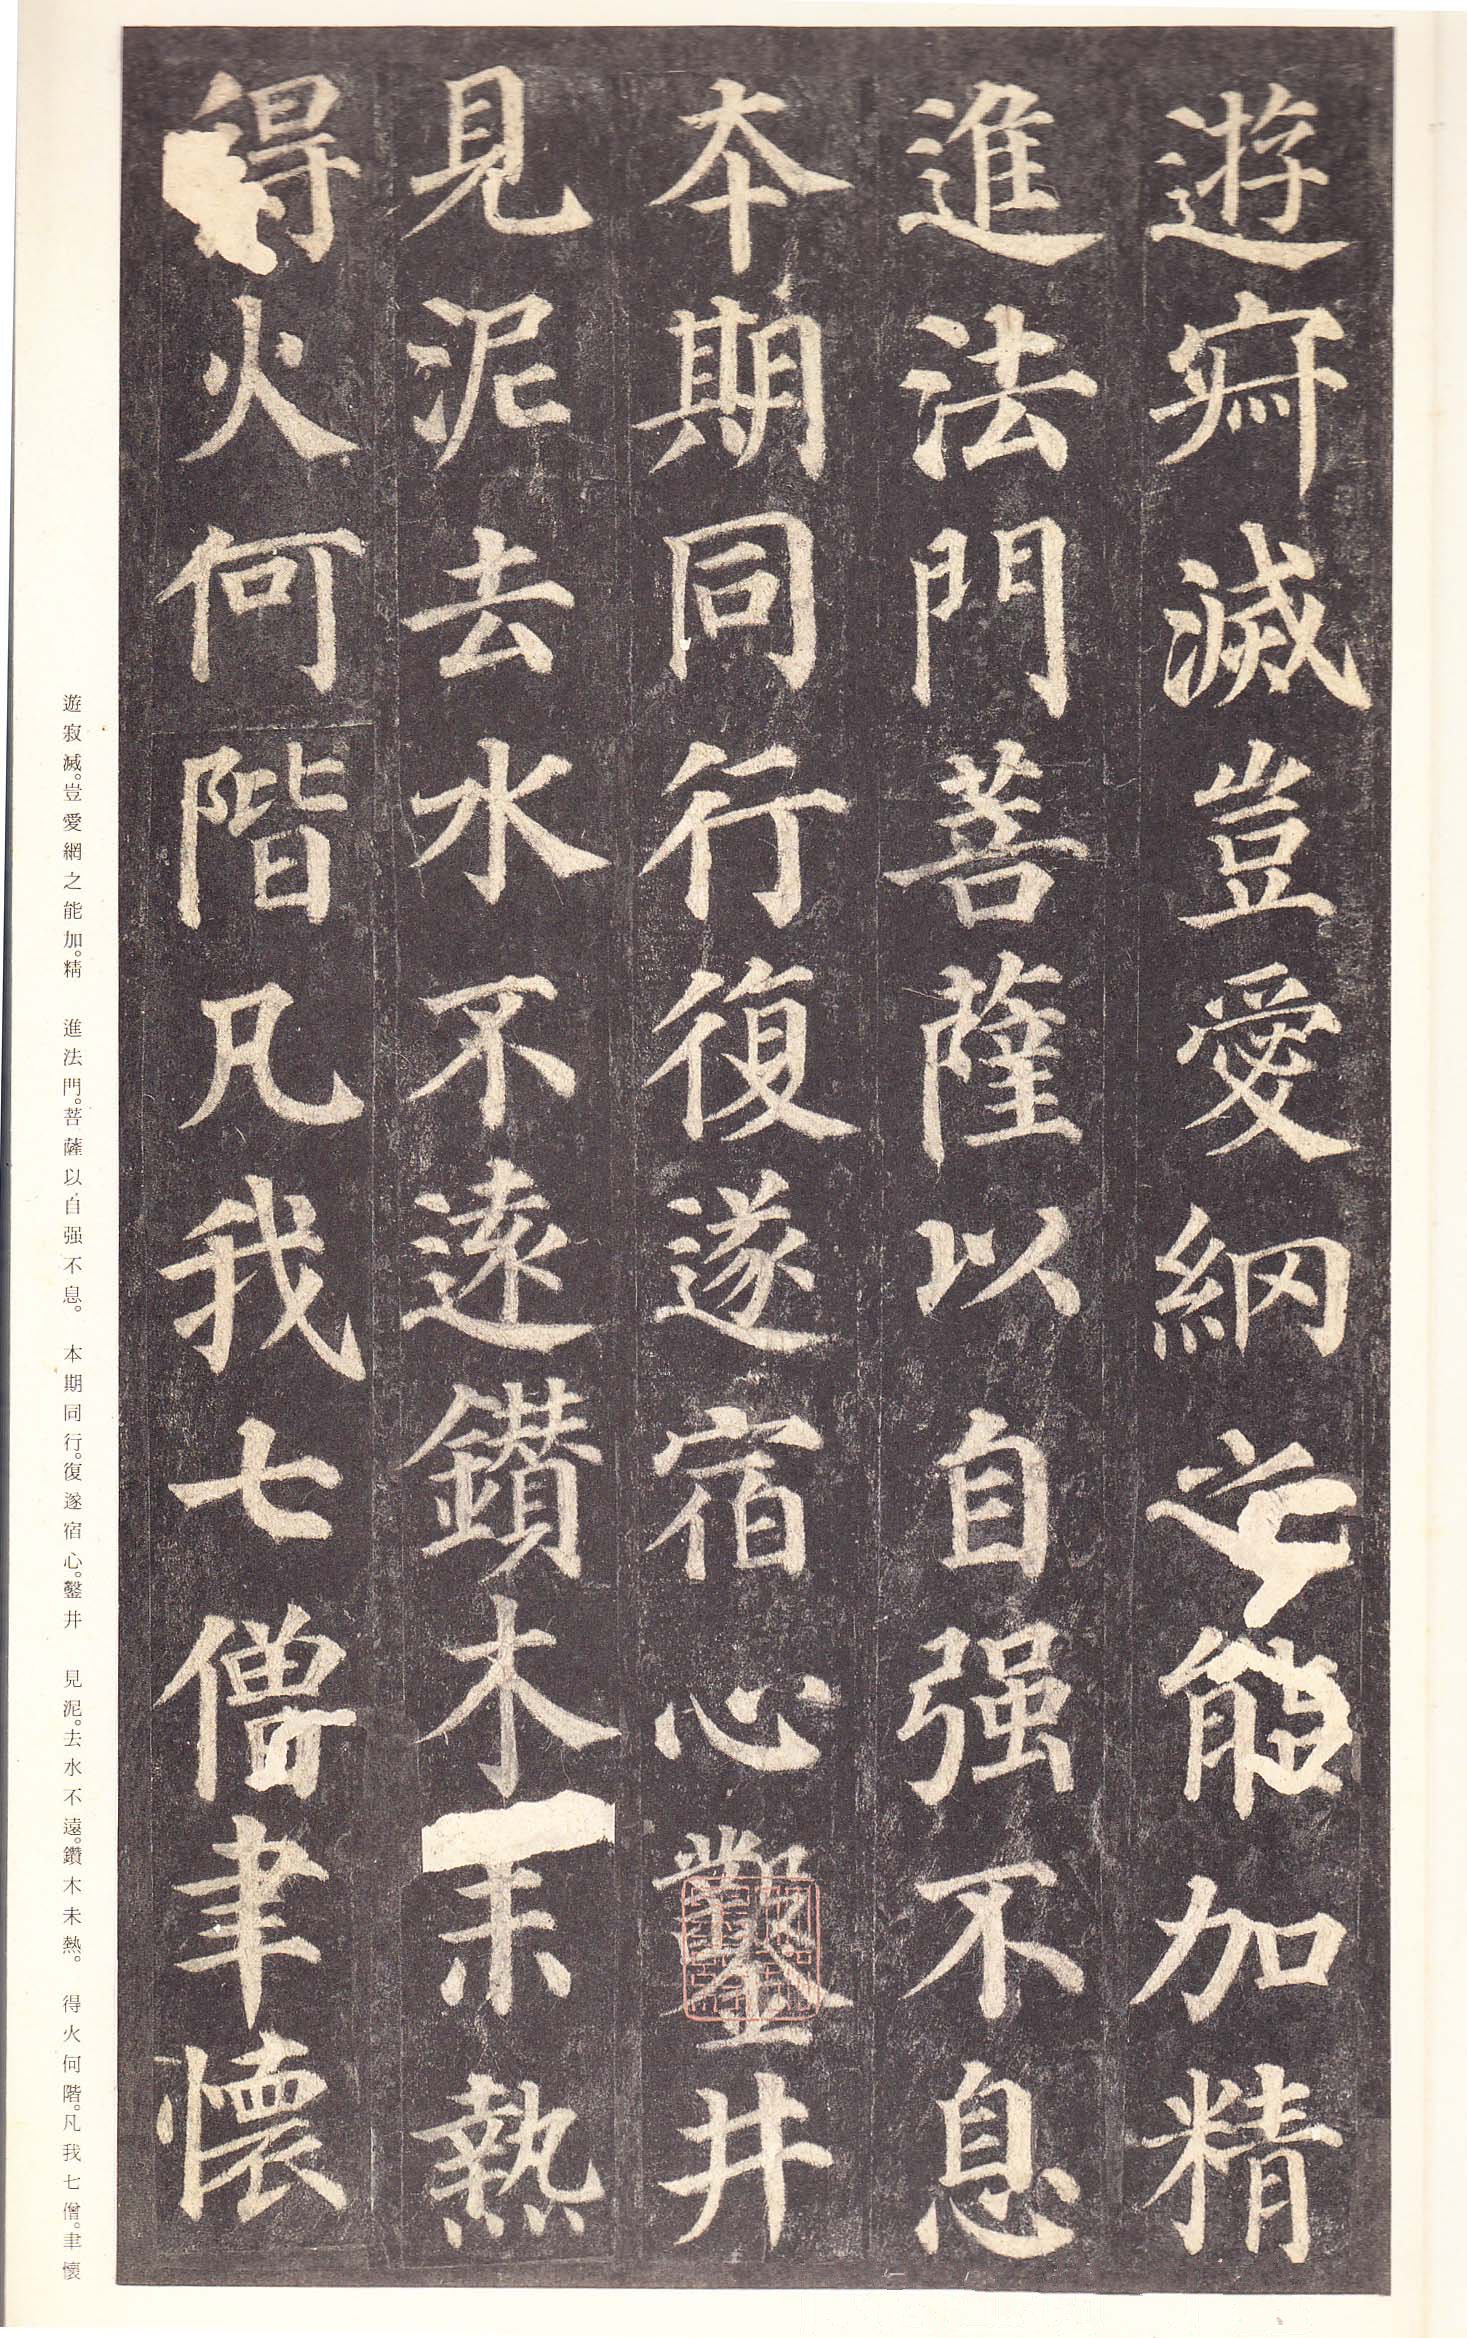 遊㝛滅豈愛網之能加精
進法門菩薩以自强不息
本期同行復遂宿心鑿井
見泥去水不遠鑽木未熱
得火何階凡我七僧聿懷
遊寂滅。豈愛網之能加。精 進法門。菩薩以自强不息。 本期同行。復遂宿心。鑿井 見泥。去水不遠。鑽木未熱。 得火何階。凡我七僧。聿懷